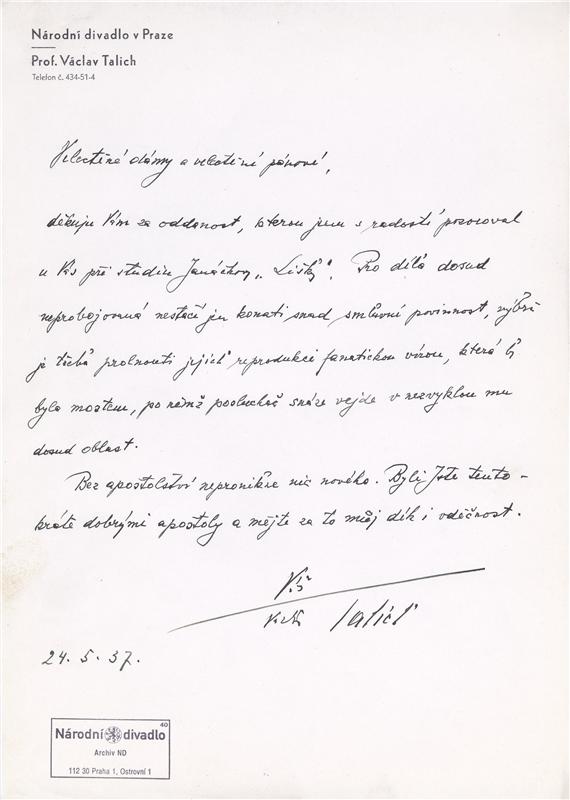 Národní divadlo v Praze
Prof. Václav Talich
Telefon č. 434-51-4
Velectěné dámy a velectění pánové,
děkuji Vám za oddanost, kterou jsem s radostí pozoroval
u Vás při studiu Janáčkovy „Lišky“. Pro díla dosud
neprobojovaná nestačí jen konati snad smluvní povinnost, nýbrž
je třeba prolnouti jejich reprodukci fanatickou vírou, která by
byla mostem, po němž posluchač snáze vejde v nezvyklou mu
dosud oblast.
Bez apoštolství nepronikne nic nového. Byli jste tento-
kráte dobrými apoštoly a mějte za to můj dík i vděčnost.
Váš
Talich
24. 5. 37.
40
Národní divadlo
Archiv ND
112 30 Praha 1, Ostrovní 1